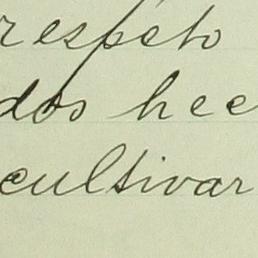 respeto
dos hec
cultivar